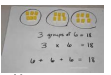 3 groups of 6 = 18
3 x 6 = 18
6 + 6 + 6 = 18